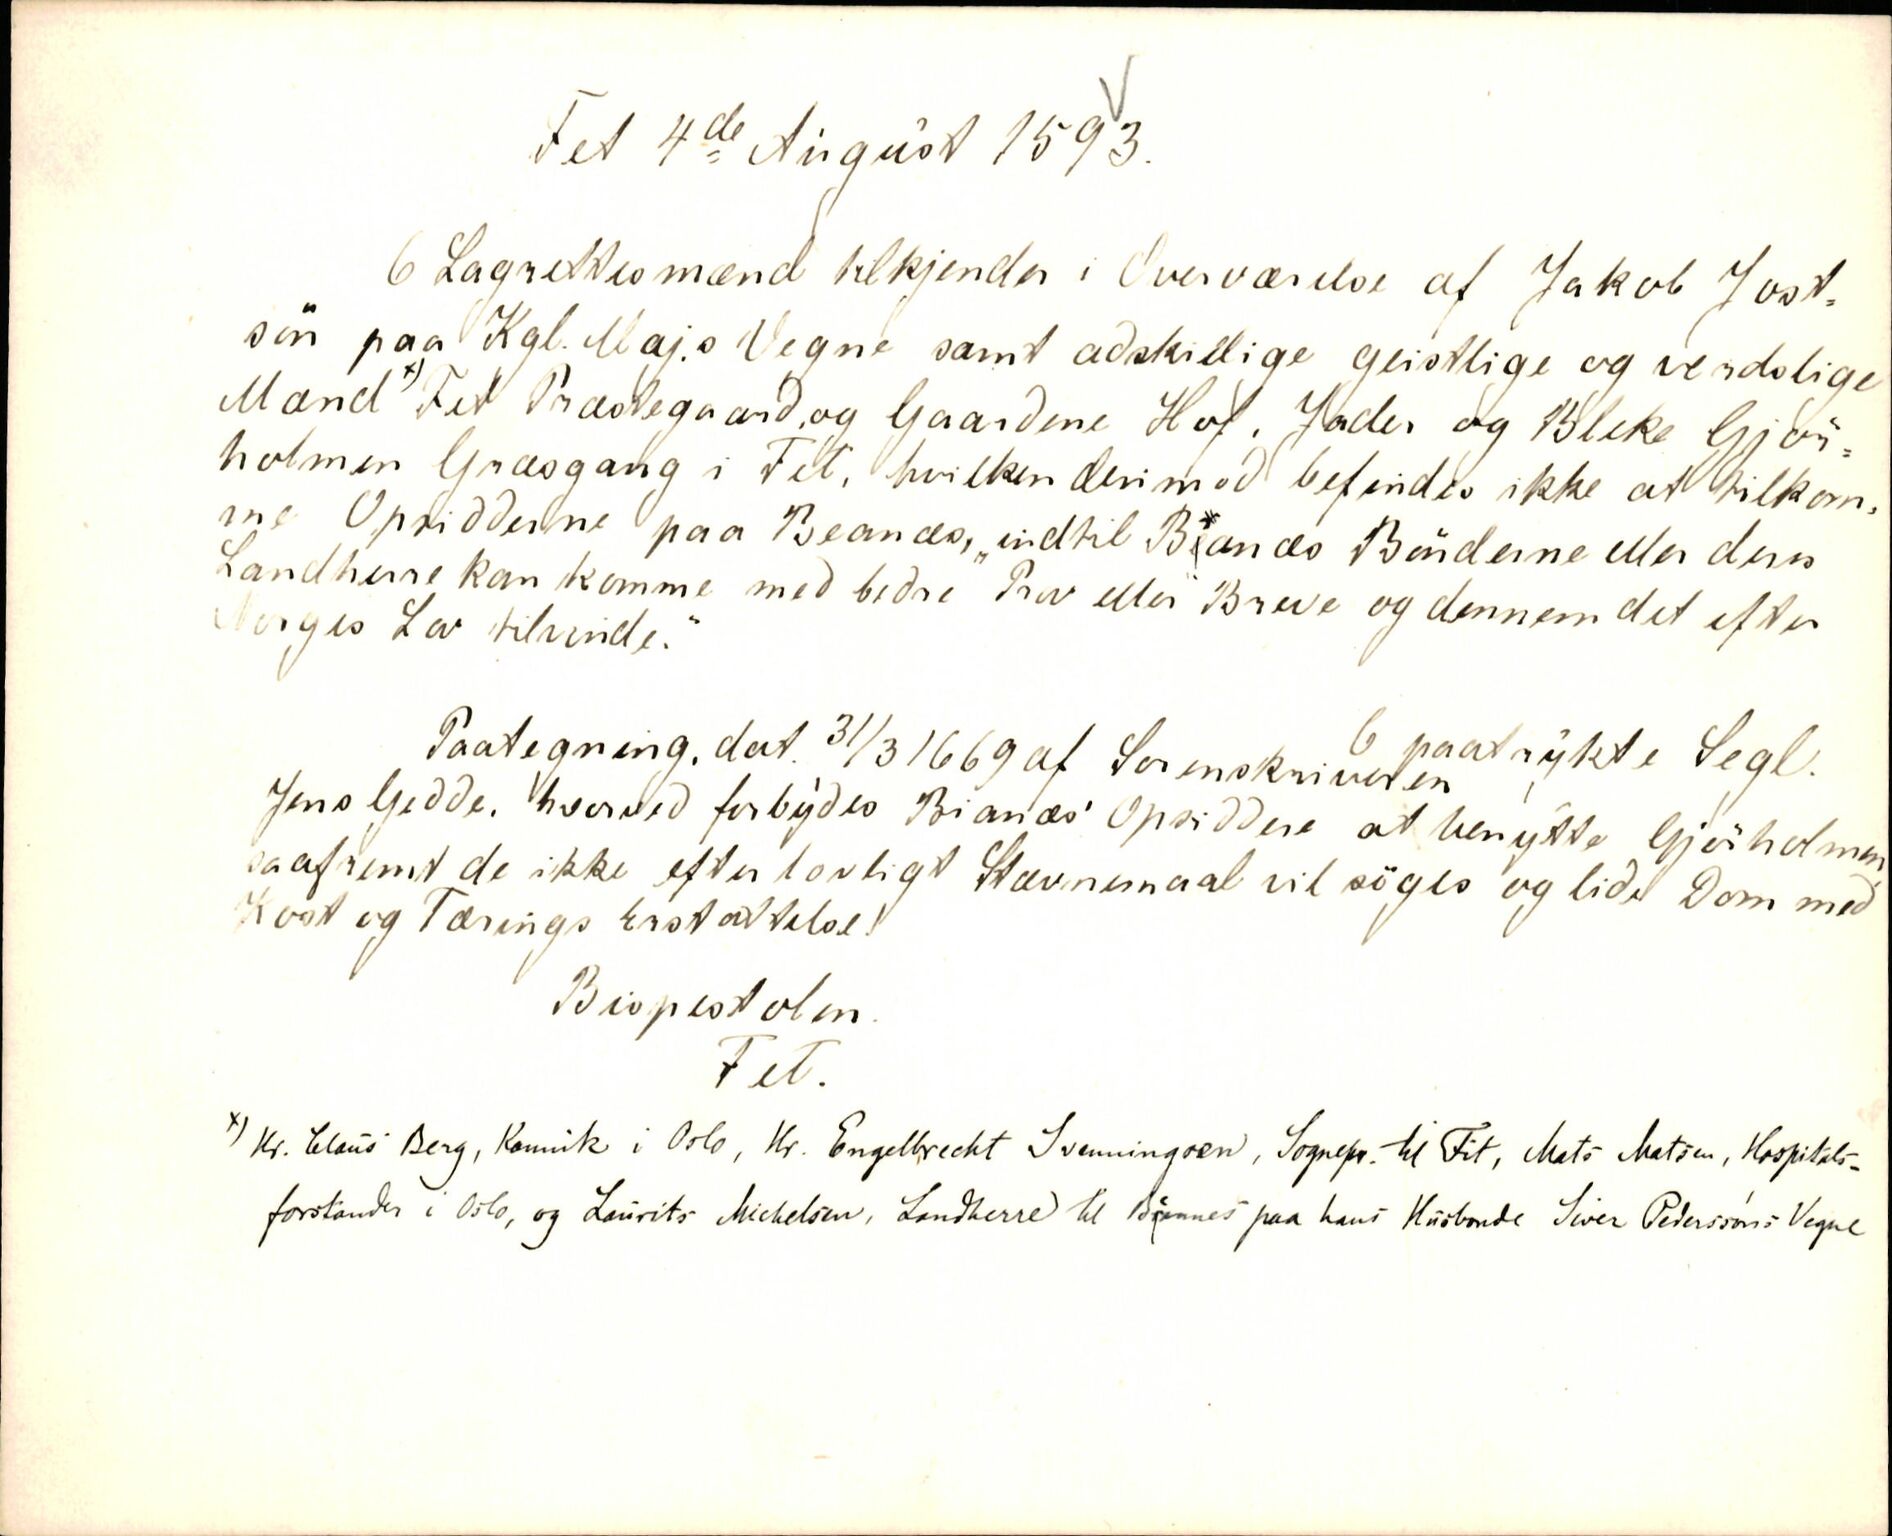 Fet 4de August 1593.
6 Lagrettesmænd tilkjender i Overværelse af Jakob Jost-
sön paa Kgl. Maj.s Vegne samt adskillige geistlige og verdslige
Mænd x) Fet Præstegaard, og Gaardene Hof, Jader og Bleke Gjör-
holmen Græsgang i Fet, hvilken derimod befindes ikke at tilkom-
me Opsidderne paa Beanæs, „indtil Bianæs Bönderne eller deres
Landherre kan komme med bedre Prov eller Breve og dennem det efter
Norges Lov tilvinde.“
6 paatrykte Segl.
Paategning, dat. 31/3 1669 af Sorenskriveren
Jens Gedde, hvorved forbydes Bianæs' Opsiddere at benytte Gjörholmen,
saafremt de ikke efter lovligt Stævnemaal vil söges og lide Dom med
Kost og Tærings Erstattelse.
Bispestolen.
Fet.
x) Hr. Claus Berg, Kannik i Oslo, Hr. Engelbrecht Svenningsøn, Sognepr. til Fet, Mats Matsen, Hospitals-
forstander i Oslo, og Laurits Michelsen, Landherre til paa hans Husbonde Siver Pederssøns Vegne